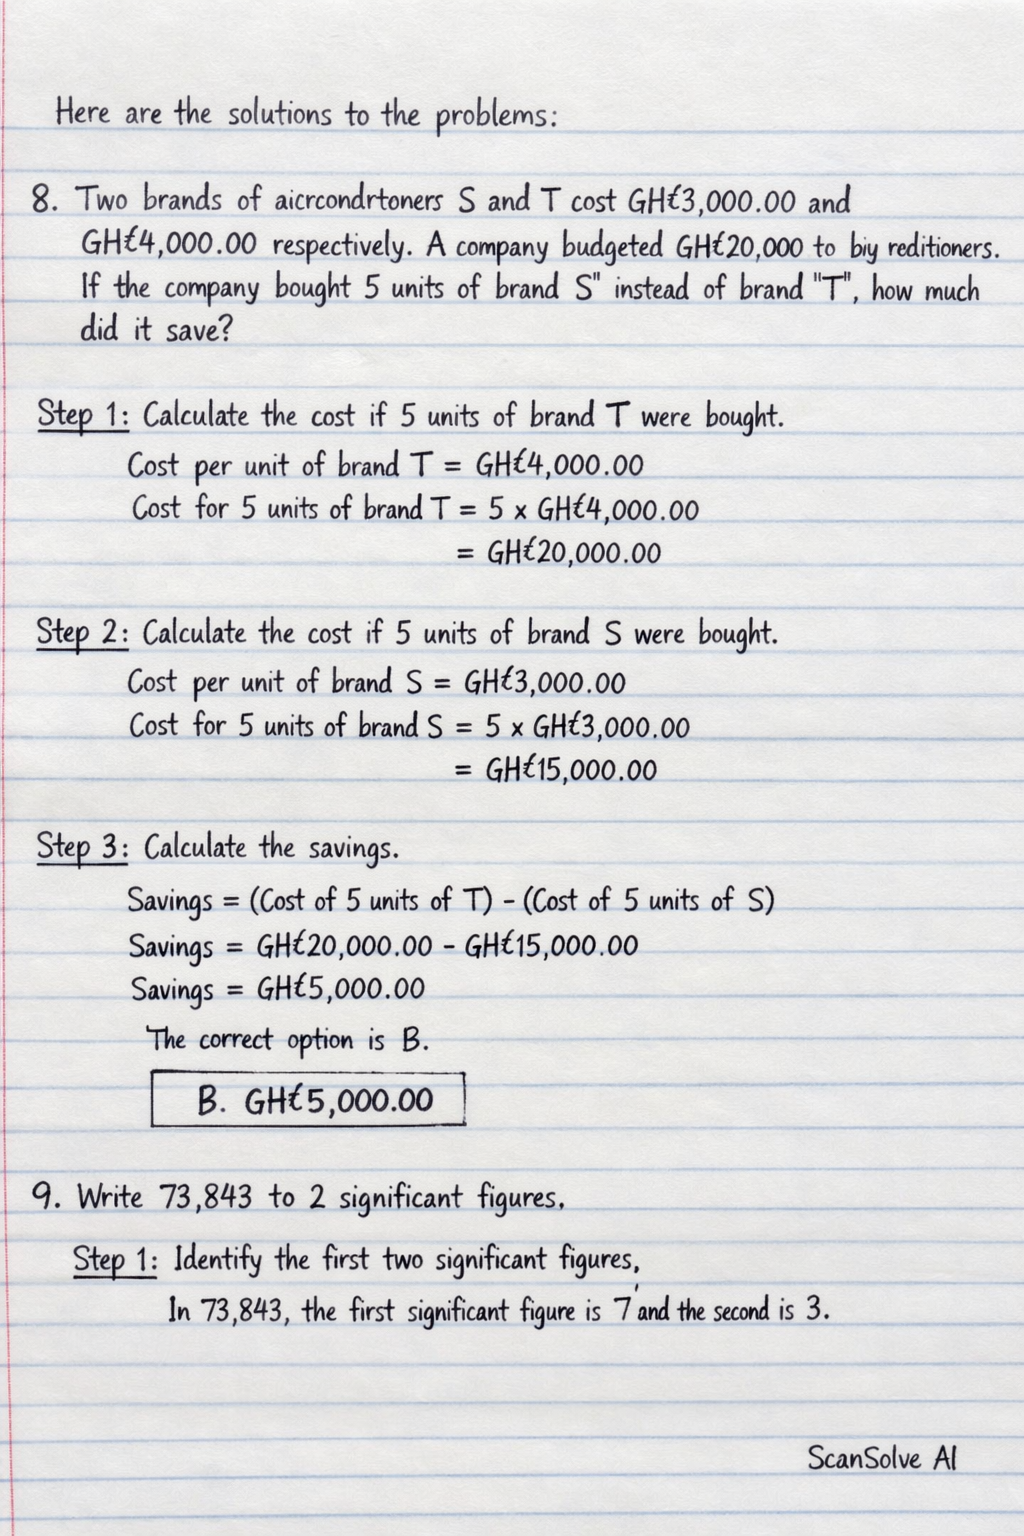 Here are the solutions to the problems:
8. Two brands of aicrcondrtoners S and T cost GH₵3,000.00 and
GH₵4,000.00 respectively. A company budgeted GH₵20,000 to biy reditioners.
If the company bought 5 units of brand S" instead of brand "T", how much
did it save?
Step 1: Calculate the cost if 5 units of brand T were bought.
Cost per unit of brand T = GH₵4,000.00
Cost for 5 units of brand T = 5 x GH₵4,000.00
= GH₵20,000.00
Step 2: Calculate the cost if 5 units of brand S were bought.
Cost per unit of brand S = GH₵3,000.00
Cost for 5 units of brand S = 5 x GH₵3,000.00
= GH₵15,000.00
Step 3: Calculate the savings.
Savings = (Cost of 5 units of T) - (Cost of 5 units of S)
Savings = GH₵20,000.00 - GH₵15,000.00
Savings = GH₵5,000.00
The correct option is B.
B. GH₵5,000.00
9. Write 73,843 to 2 significant figures.
Step 1: Identify the first two significant figures,
In 73,843, the first significant figure is 7 and the second is 3.
ScanSolve AI